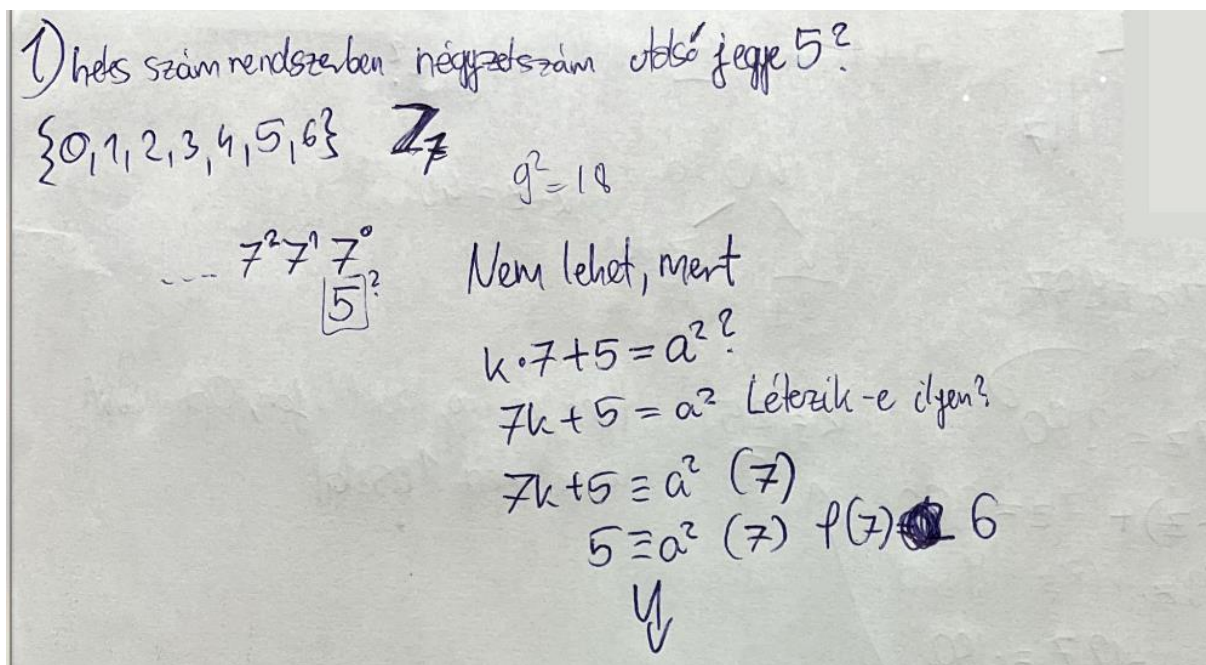 1) hetes számrendszerben négyzetszám utolsó jegye 5?
{0,1,2,3,4,5,6} Z₇
9²=18
.... 7² 7¹ 7⁰
5?
Nem lehet, mert
k·7+5=a²?
7k+5=a² Létezik-e ilyen?
7k+5≡a² (7)
5≡a² (7) φ(7)= 6
⇓